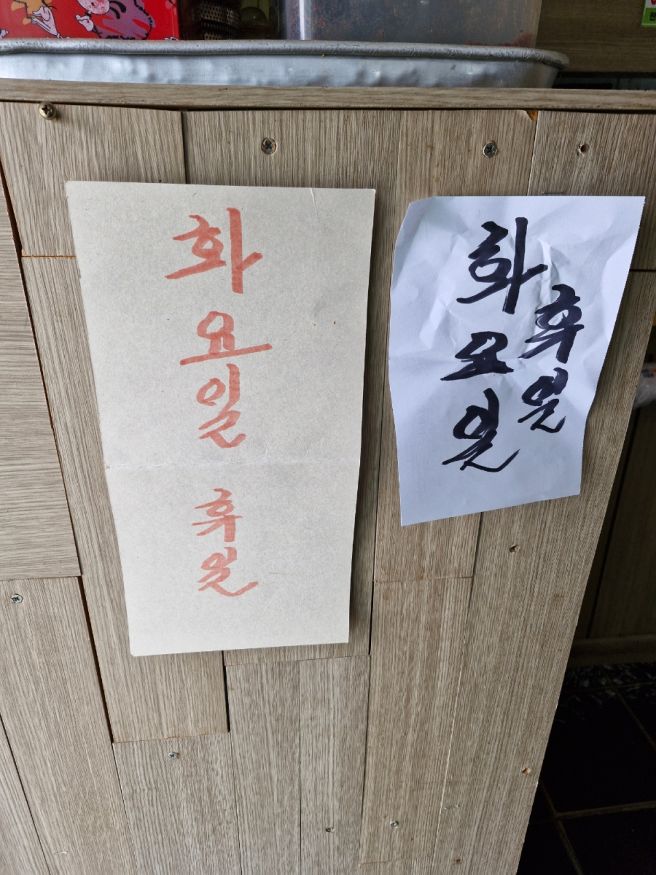 화요일
휴일
화요일
휴일